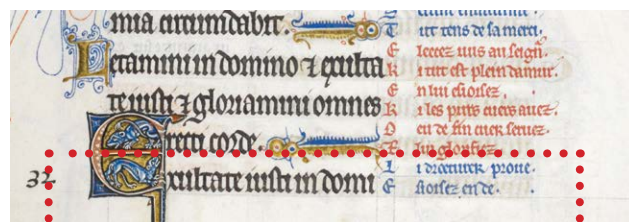 mia circumdabit.
Letamini in domino ⁊ exulta
te iusti ⁊ gloriamini omnes
recti corde.
32
Exultate iusti in domi
T ut tens de sa merci.
E leecez uus au seign̄.
K i tut est plein damur.
E n lui esioisez.
K i les purs cuers auez.
en de fin cuer seruez.
lui glorifiez.
i dreiturer
E sioisez en de.